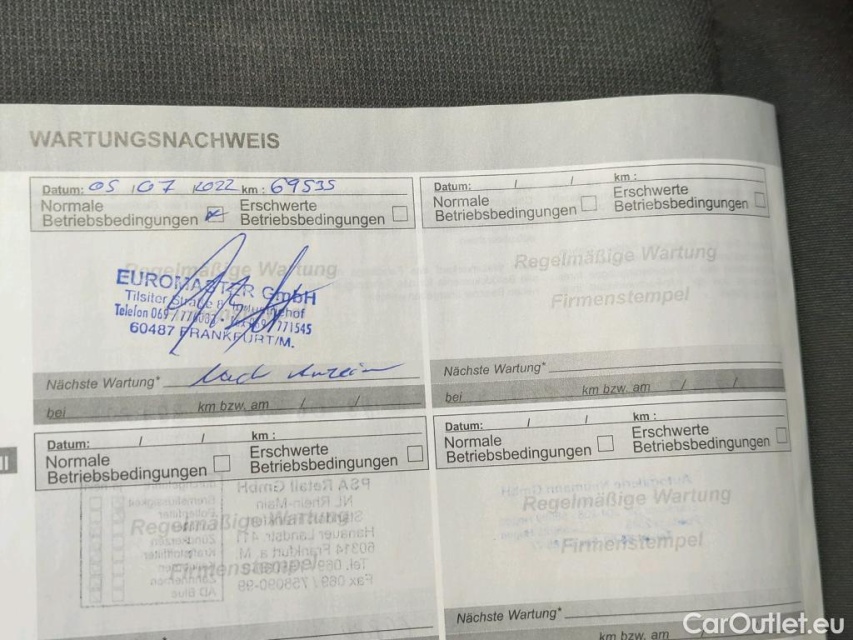 WARTUNGSNACHWEIS
Datum: 05 / 07 / 2022 km : 69535
Normale
Betriebsbedingungen
Erschwerte
Betriebsbedingungen
Regelmäßige Wartung
EUROMASTER GmbH
Tilsiter Straße
Telefon 069/
771545
60487 FRANKFURT/M.
Nächste Wartung* nach Anzeige
bei km bzw. am / /
Datum: / / km :
Normale
Betriebsbedingungen
Erschwerte
Betriebsbedingungen
Regelmäßige Wartung
Firmenstempel
Nächste Wartung*
bei km bzw. am / /
Datum: / / km :
Normale
Betriebsbedingungen
Erschwerte
Betriebsbedingungen
Regelmäßige Wartung
Firmenstempel
PSA Retail GmbH
NL Rhein-Main
Hanauer Landstr. 411
60314 Frankfurt a. M.
Fax 069 / 758090-99
AD Blue
Datum: / / km :
Normale
Betriebsbedingungen
Erschwerte
Betriebsbedingungen
Regelmäßige Wartung
Firmenstempel
Nächste Wartung*
km bzw. am
CarOutlet.eu